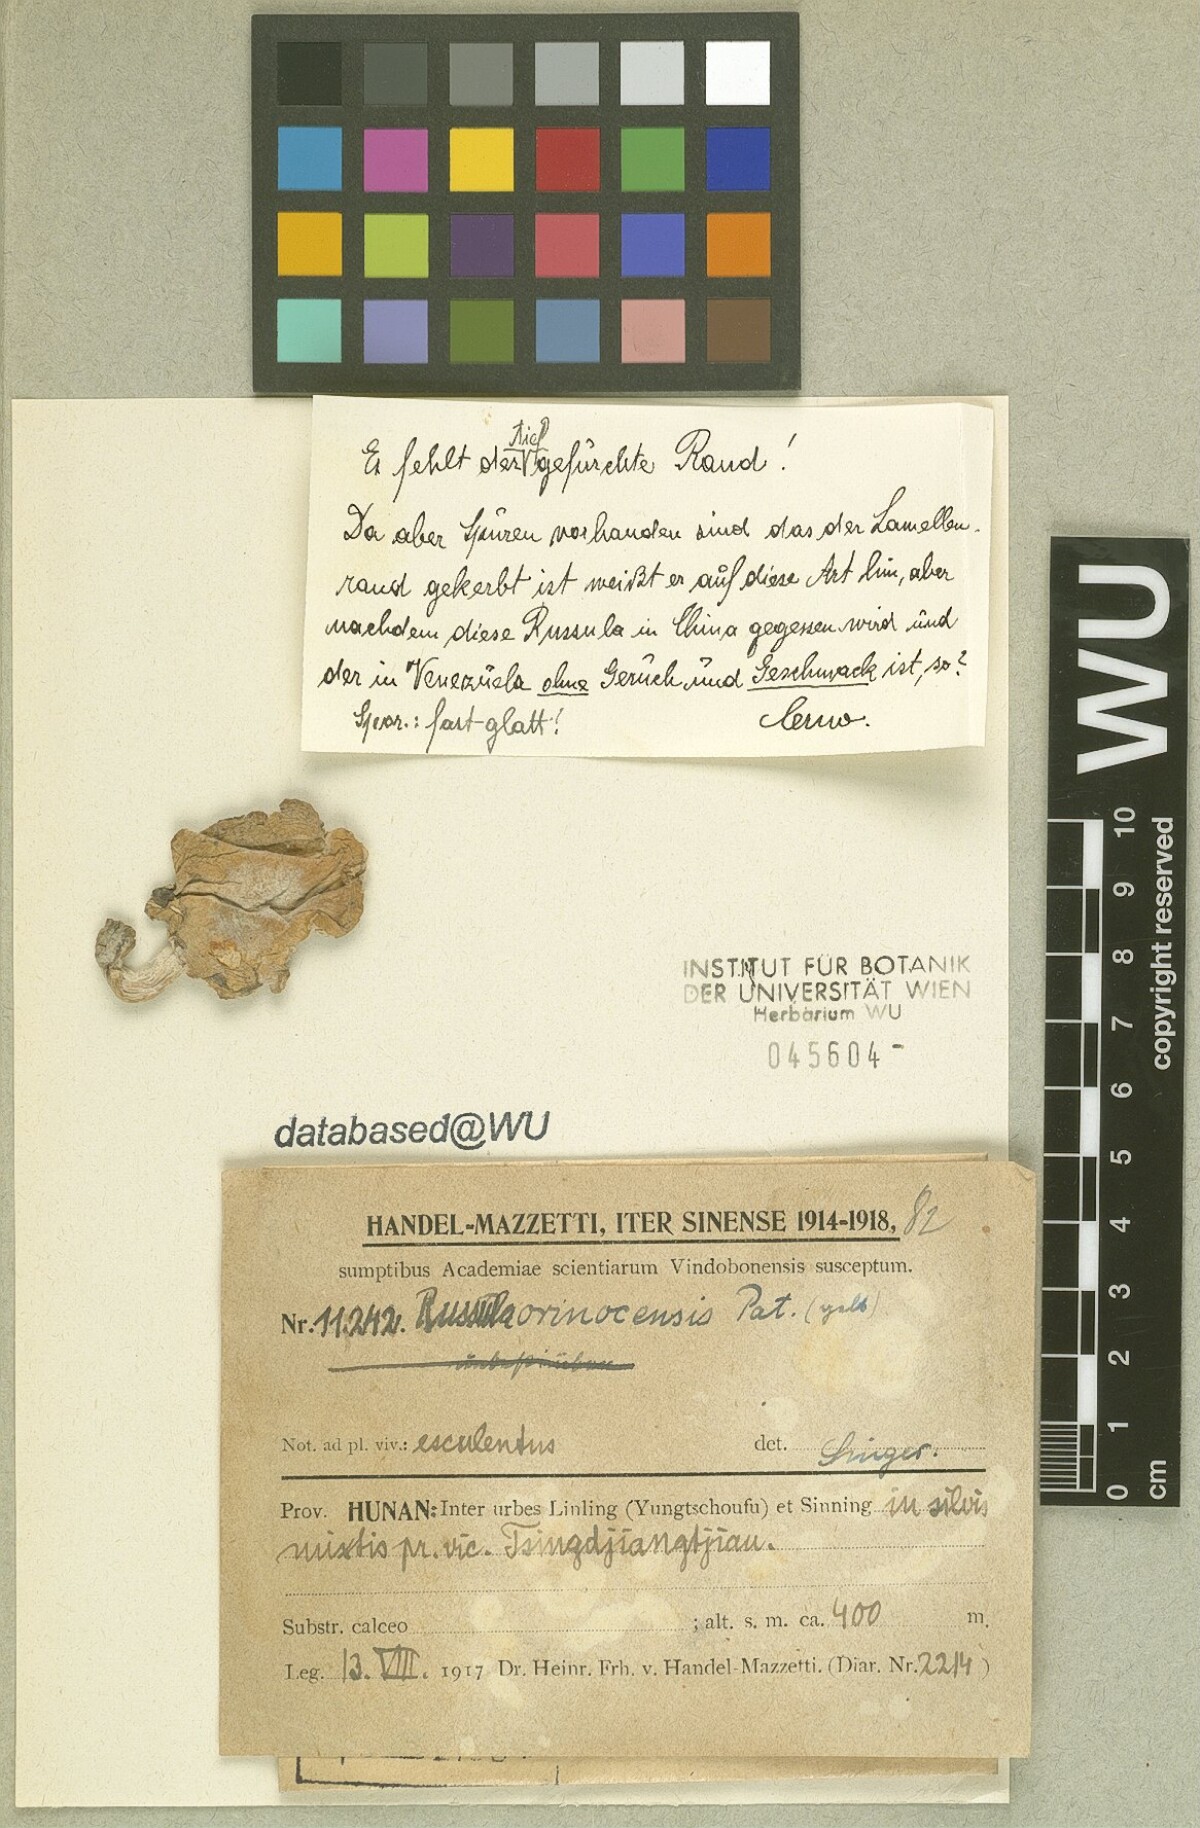 Es fehlt der tief gefürchte Rand!
Da aber Spüren vorhanden sind das der Lamellen-
rand gekerbt ist weißt er auf diese Art hin, aber
nachdem diese Russula in China gegessen wird und
der in Venezüela ohne Gerüch und Geschmack ist, so?
Spor.: fast glatt!
INSTITUT FÜR BOTANIK
DER UNIVERSITÄT WIEN
Herbarium WU
045604-
databased@WU
HANDEL-MAZZETTI, ITER SINENSE 1914-1918, 82
sumptibus Academiae scientiarum Vindobonensis susceptum.
Nr. 11242. Russula orinocensis Pat. (gelb)
Not. ad pl. viv.: esculentus det. Singer.
Prov. HUNAN: Inter urbes Linling (Yungtschoufu) et Sinning in silvis
mixtis pr. vic. Tsingdjiangtjiau.
Substr. calceo ; alt. s. m. ca. 400 m.
Leg. 13. VIII. 1917 Dr. Heinr. Frh. v. Handel-Mazzetti. (Diar. Nr. 2214)
WU
copyright reserved
10
9
8
7
6
5
4
3
2
1
0
cm